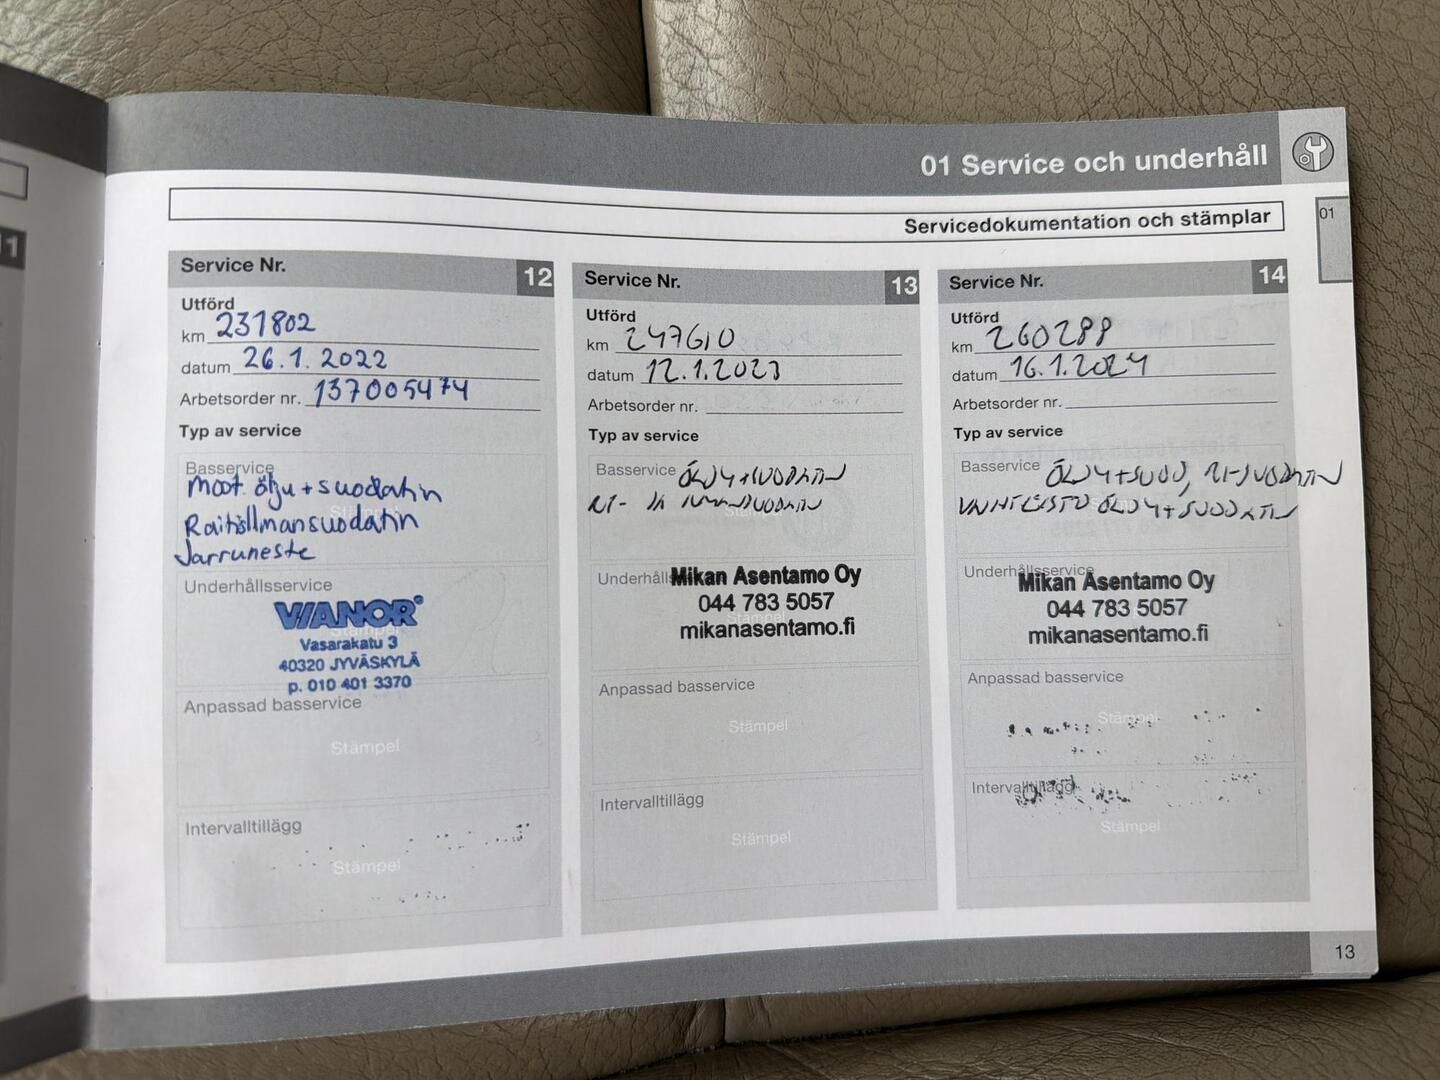 01 Service och underhåll
Servicedokumentation och stämplar
01
Service Nr. 12
Utförd
km 231802
datum 26.1.2022
Arbetsorder nr. 137005474
Typ av service
Basservice
moot. öljy + suodatin
Stämpel
Raitisilmansuodatin
Jarruneste
Underhållsservice
VIANOR
Stämpel
Vasarakatu 3
40320 JYVÄSKYLÄ
p. 010 401 3370
Anpassad basservice
Stämpel
Intervalltillägg
Stämpel
Service Nr. 13
Utförd
km 247610
datum 12.1.2023
Arbetsorder nr.
Typ av service
Basservice ÖLJY+SUODATIN
RI- JA ILMANSUODATIN
Stämpel
Underhålls
Mikan Asentamo Oy
044 783 5057
Stämpel
mikanasentamo.fi
Anpassad basservice
Stämpel
Intervalltillägg
Stämpel
Service Nr. 14
Utförd
km 260288
datum 16.1.2024
Arbetsorder nr.
Typ av service
Basservice ÖLJY+SUOD, RI-SUODATIN
VAIHTEISTO ÖLJY+SUODATIN
Underhållsservice
Mikan Asentamo Oy
044 783 5057
mikanasentamo.fi
Anpassad basservice
Stämpel
Intervalltillägg
Stämpel
13